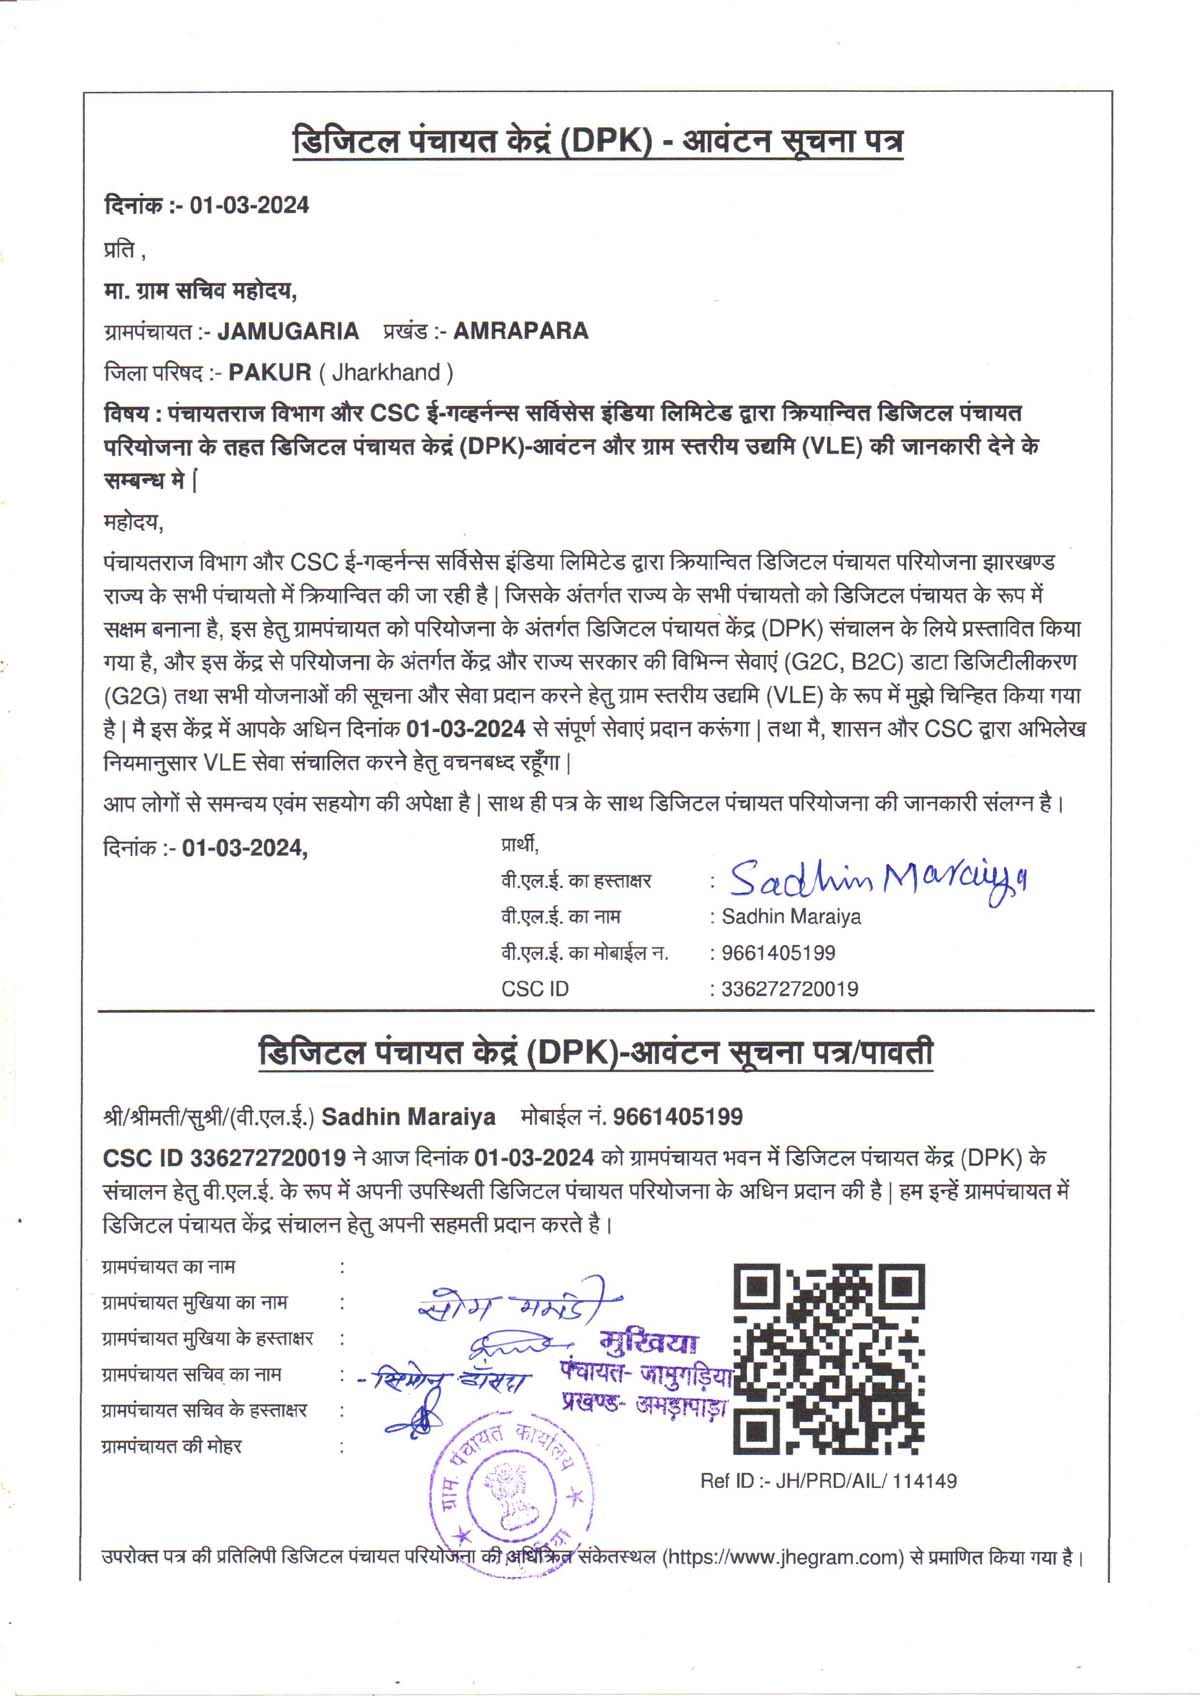 डिजिटल पंचायत केद्रं (DPK) - आवंटन सूचना पत्र
दिनांक :- 01-03-2024
प्रति ,
मा. ग्राम सचिव महोदय,
ग्रामपंचायत :- JAMUGARIA प्रखंड :- AMRAPARA
जिला परिषद :- PAKUR ( Jharkhand )
विषय : पंचायतराज विभाग और CSC ई-गव्हर्नन्स सर्विसेस इंडिया लिमिटेड द्वारा क्रियान्वित डिजिटल पंचायत
परियोजना के तहत डिजिटल पंचायत केद्रं (DPK)-आवंटन और ग्राम स्तरीय उद्यमि (VLE) की जानकारी देने के
सम्बन्ध मे |
महोदय,
पंचायतराज विभाग और CSC ई-गव्हर्नन्स सर्विसेस इंडिया लिमिटेड द्वारा क्रियान्वित डिजिटल पंचायत परियोजना झारखण्ड
राज्य के सभी पंचायतो में क्रियान्वित की जा रही है | जिसके अंतर्गत राज्य के सभी पंचायतो को डिजिटल पंचायत के रूप में
सक्षम बनाना है, इस हेतु ग्रामपंचायत को परियोजना के अंतर्गत डिजिटल पंचायत केंद्र (DPK) संचालन के लिये प्रस्तावित किया
गया है, और इस केंद्र से परियोजना के अंतर्गत केंद्र और राज्य सरकार की विभिन्न सेवाएं (G2C, B2C) डाटा डिजिटीलीकरण
(G2G) तथा सभी योजनाओं की सूचना और सेवा प्रदान करने हेतु ग्राम स्तरीय उद्यमि (VLE) के रूप में मुझे चिन्हित किया गया
है | मै इस केंद्र में आपके अधिन दिनांक 01-03-2024 से संपूर्ण सेवाएं प्रदान करूंगा | तथा मै, शासन और CSC द्वारा अभिलेख
नियमानुसार VLE सेवा संचालित करने हेतु वचनबध्द रहूँगा |
आप लोगों से समन्वय एवंम सहयोग की अपेक्षा है | साथ ही पत्र के साथ डिजिटल पंचायत परियोजना की जानकारी संलग्न है ।
दिनांक :- 01-03-2024,
प्रार्थी,
वी.एल.ई. का हस्ताक्षर : Sadhin Maraiya
वी.एल.ई. का नाम : Sadhin Maraiya
वी.एल.ई. का मोबाईल न. : 9661405199
CSC ID : 336272720019
डिजिटल पंचायत केद्रं (DPK)-आवंटन सूचना पत्र/पावती
श्री/श्रीमती/सुश्री/(वी.एल.ई.) Sadhin Maraiya मोबाईल नं. 9661405199
CSC ID 336272720019 ने आज दिनांक 01-03-2024 को ग्रामपंचायत भवन में डिजिटल पंचायत केंद्र (DPK) के
संचालन हेतु वी.एल.ई. के रूप में अपनी उपस्थिती डिजिटल पंचायत परियोजना के अधिन प्रदान की है | हम इन्हें ग्रामपंचायत में
डिजिटल पंचायत केंद्र संचालन हेतु अपनी सहमती प्रदान करते है ।
ग्रामपंचायत का नाम :
ग्रामपंचायत मुखिया का नाम :
ग्रामपंचायत मुखिया के हस्ताक्षर :
मुखिया
पंचायत- जामुगड़िया
प्रखण्ड- अमड़ापाड़ा
ग्रामपंचायत सचिव का नाम :
ग्रामपंचायत सचिव के हस्ताक्षर :
ग्रामपंचायत की मोहर :
ग्राम पंचायत कार्यालय
Ref ID :- JH/PRD/AIL/ 114149
उपरोक्त पत्र की प्रतिलिपी डिजिटल पंचायत परियोजना की अधिक्रित संकेतस्थल (https://www.jhegram.com) से प्रमाणित किया गया है ।